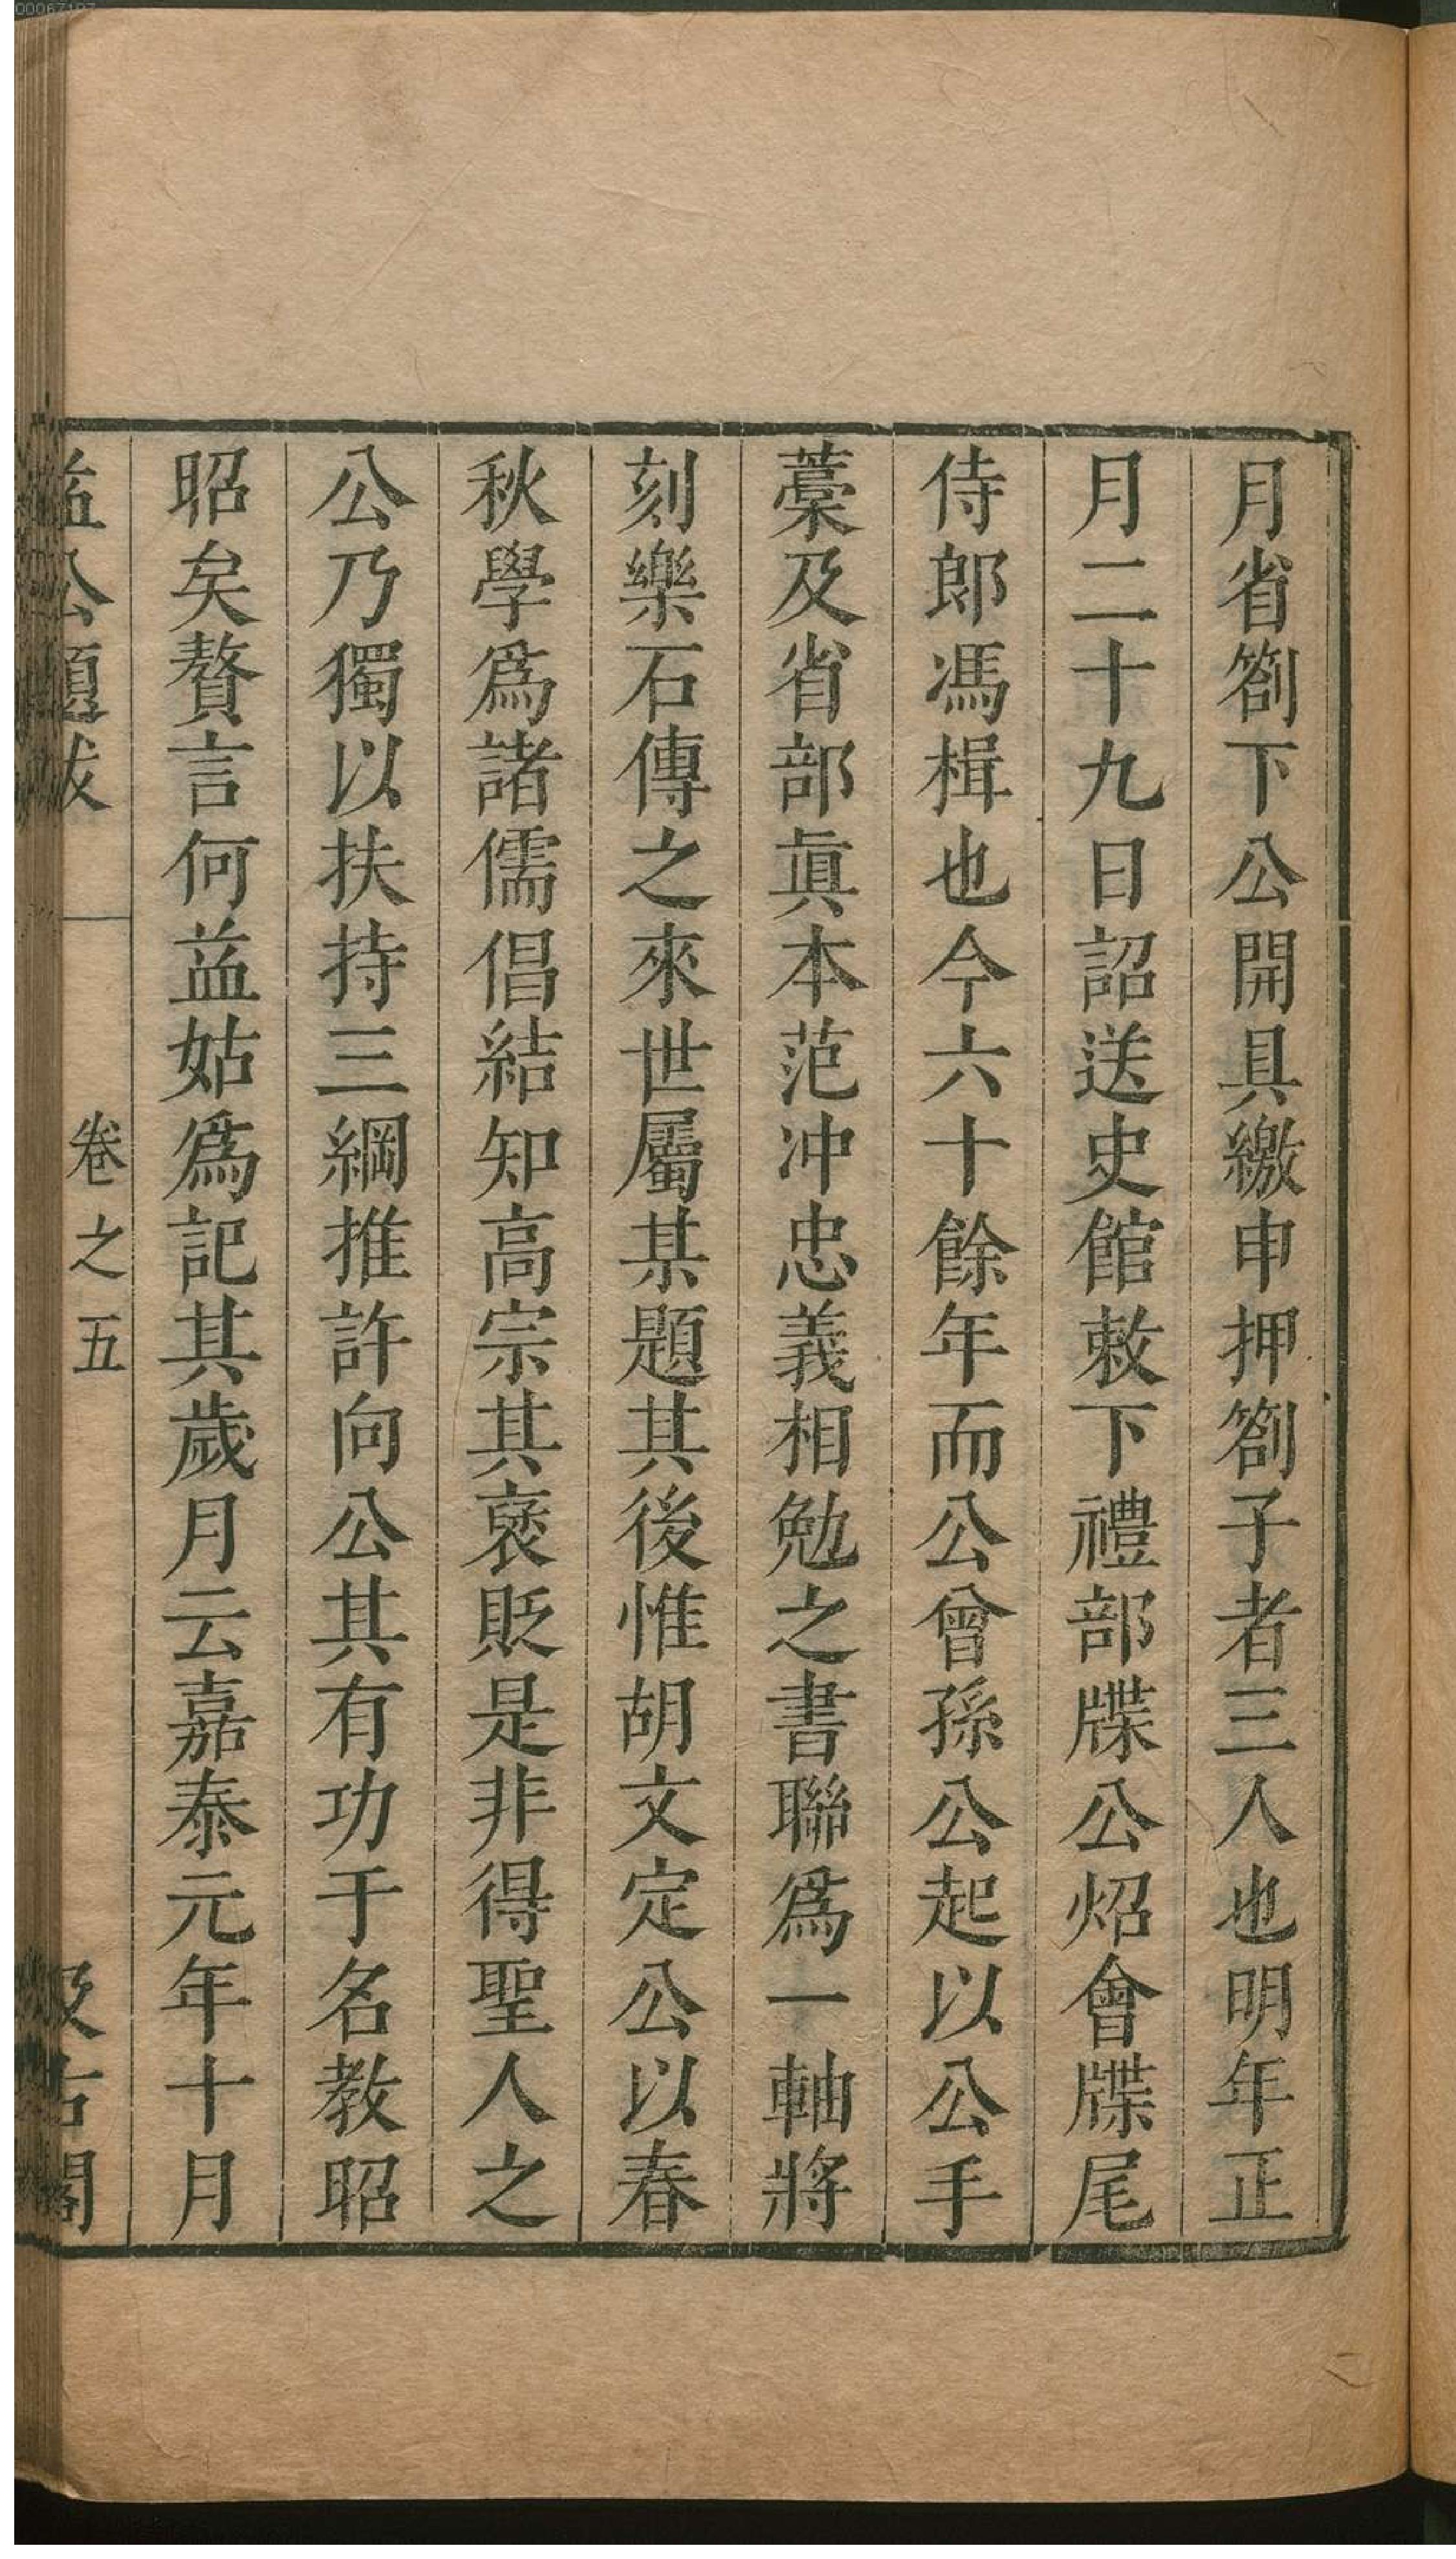 月省劄下公開具繳申押劄子者三人也明年正
月二十九日詔送史館敕下禮部牒公炤會牒尾
侍郎馮楫也今六十餘年而公曾孫公起以公手
藁及省部眞本范冲忠義相勉之書聯爲一軸將
刻樂石傳之來世屬某題其後惟胡文定公以春
秋學爲諸儒倡結知高宗其褒貶是非得聖人之
公乃獨以扶持三綱推許向公其有功于名教昭
昭矣贅言何益姑爲記其歲月云嘉泰元年十月
益公題跋 卷之五 汲古閣